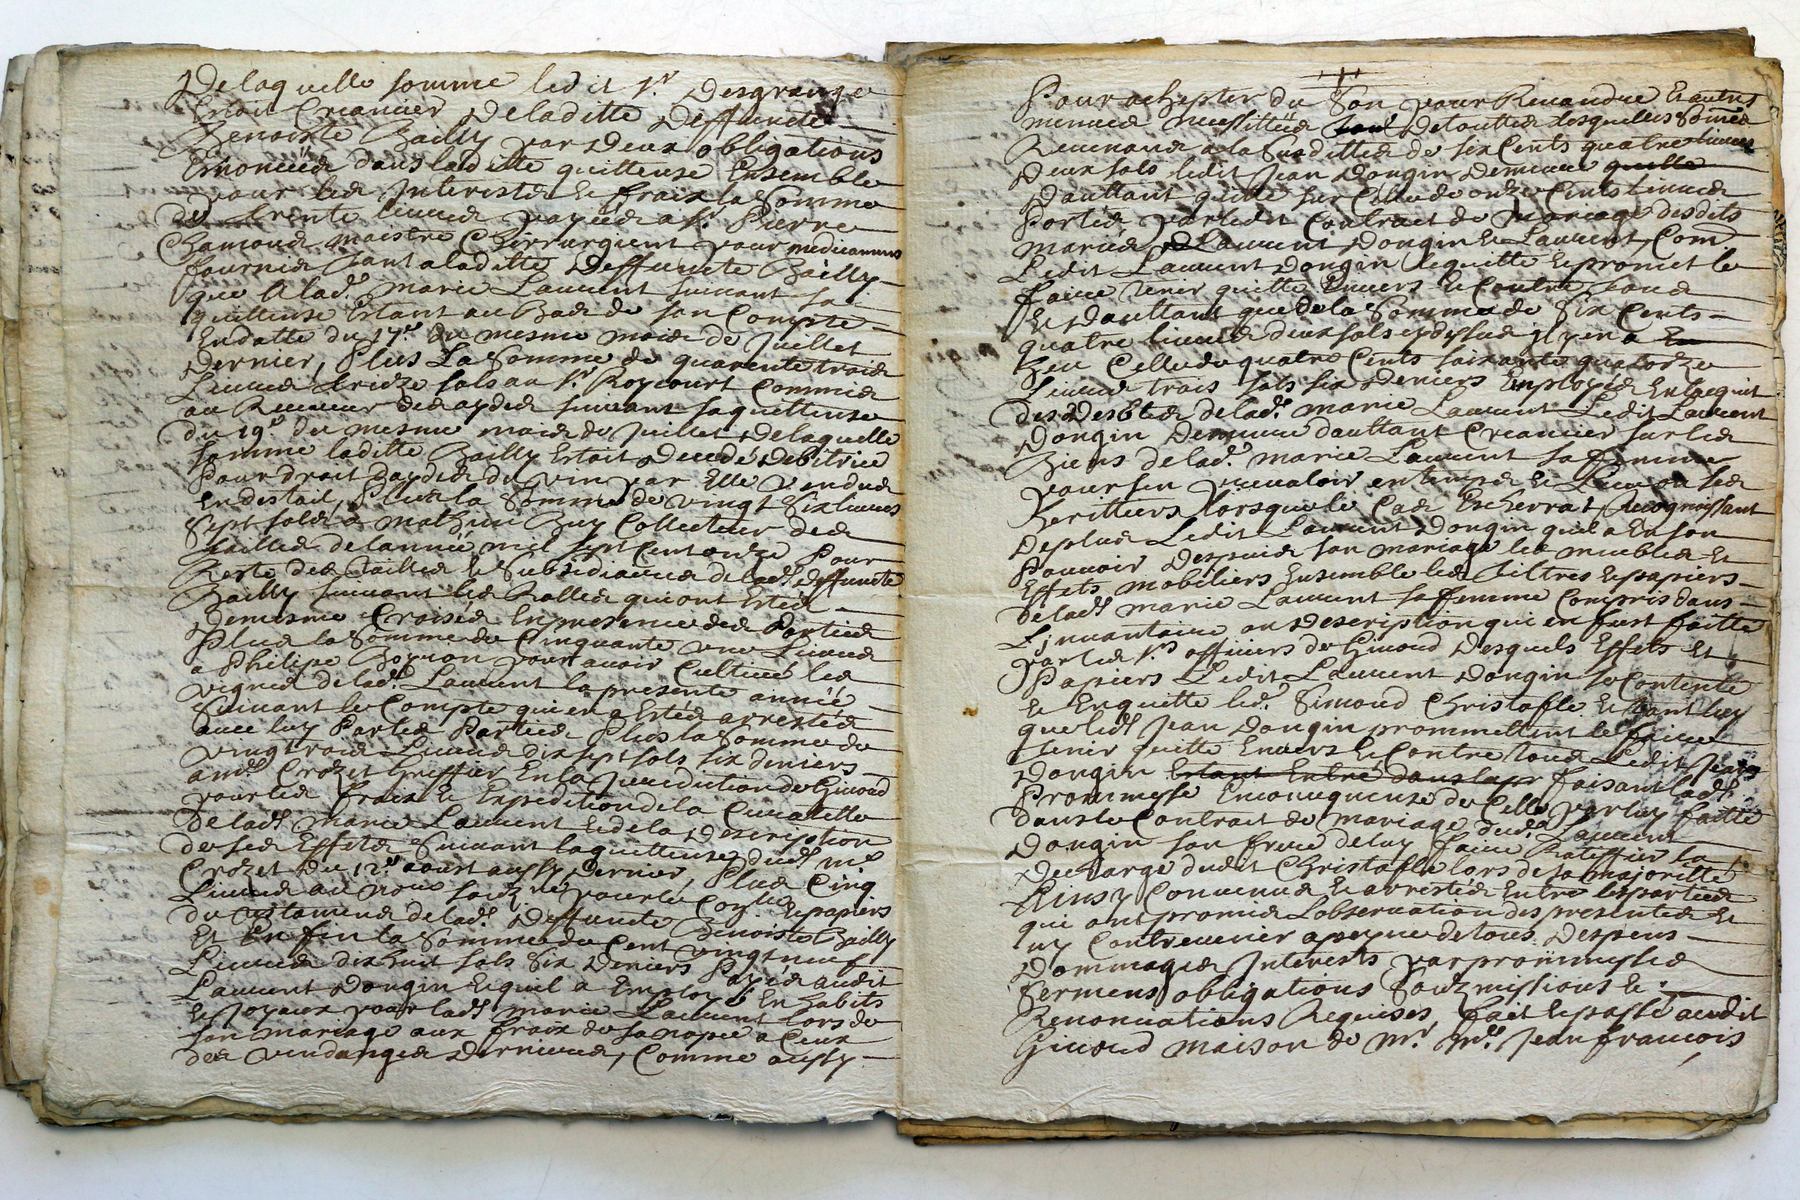 De laquelle somme ledit Sr. Desgrange
Estoit Creancier De laditte Deffuncte
Benoiste Bailly par Deux obligations
Enoncéés dans laditte quittense Ensemble
pour les Interestz et fraix la Somme
de trente livres payéés a Sr. Pierre
Chamond maistre Chirrurgient pour medicamens
fournis tant a laditte Deffuncte Bailly
que A lad. marie Laurent suivant sa
quittense Estant au Bas de son Compte
En datte du 17e. du mesme mois de Juillet
Dernier, Plus La Somme de quarente trois
Livres treize sols au Sr. Roycourt Commis
au Receveur des aydes suivant sa quittense
du 19e. du mesme mois de Juillet De laquelle
somme laditte Bailly Estoit Decedé Debitrice
Pour droit Daydes du vin par Elle vendus
En destail, Plus la Somme de vingt Six livres
Sept sols a mathieu Buy Collecteur des
tailles de lannéé mil sept Cent onze Pour
Reste des tailles et Subsidiaires de lad. Deffuncte
Bailly suivant les Rolles qui ont Estés
Demesme Croisés En presence des Parties
Plus la Somme de Cinquante une Livres
a Philipe pour avoir Cultivé les
vignes de lad. Laurent la presente annéé
Suivant le Compte qui en a Estés arrestés
avec luy Parties Parties Plus la Somme de
vingt trois Livres dix sept sols six deniers
a md. Crozet Greffier En la Jurisdiction de Givord
pour les fraix et Expedition de la Curatelle
De lad. marie Laurent et de la Description
de ses Effets Suivant la quittense dud. me.
Crozet du 12e. aoust aussy Dernier, Plus Cinq
Livres au nore. pour le Con et papiers
du testament de lad. Deffuncte Benoiste Bailly
Et En fin la Somme de Cent vingt neuf
Livres dix huit sols Six Deniers Payés audit
Laurent Dongin lequel a Employé En habits
et Joyaux pour lad. marie Laurent lors de
son mariage aux fraix de sa nopce a Ceux
des vendanges Dernieres, Comme aussy
Pour achepter du Son pour Revandre Et autres
menues necessittés Detouttes lesquelles Sommes
Revenant a la Susditte de six Cents quatre livres
Deux sols ledit Jean Dongin Demeure quitte
Dauttant quitte sur Celle de onze Cents Livres
Portés par ledit Contrat de Mariage desdits
mariés Laurent Dongin et Laurent, Com
Ledit Laurent Dongin lequitte et promet le
faire tenir quitte Envers et Contre tous
Et Dauttant que de la Somme de Six Cents
quatre livres deux sols cy dessus il y en a
Eu Celle de quatre Cents soixante quatorze
Livres trois sols six Deniers Employés En lacquit
des Debtes de lad. marie Laurent Ledit Laurent
Dongin Demeure dauttant Creancier sur les
Biens de lad. marie Laurent sa femme
pour sen prevaloir en temps et Lieu ou ses
Heritiers lorsque le Cas Escherrat Recognoissant
Deplus Ledit Laurent Dongin quil a En son
Pouvoir Despuis son mariage les meubles et
Effets mobiliers Ensemble les tiltres et papiers
de lad. marie Laurent sa femme Compris dans
Linvantaire ou Description qui en fust faitte
par les Srs. officiers de Givord Desquels Effets Et
Papiers Ledit Laurent Dongin se Contente
Et En quitte led. Simond Christofle Et tant luy
que led. Jean Dongin promettent le faire
tenir quitte Envers et Contre tous Ledit Jean
Dongin Estant Entré dans lapr faisant lad.
Prommesse Enconsequence de Celle par luy faitte
dans le Contrat de mariage dud. Laurent
Dongin son frere de luy faire Ratiffier la
Decharge dudit Christofle lors de sa majoritté
Ainsy Convenus et arrestés Entre les parties
qui ont promis Lobservation des presentes Et
ny Contrevenir a peyne de tous Despens
Dommages Interests par prommesses
Sermens obligations Soubzmissions et
Renonciations Requises, fait et passé audit
Givord maison de Mr. me. Jean francois